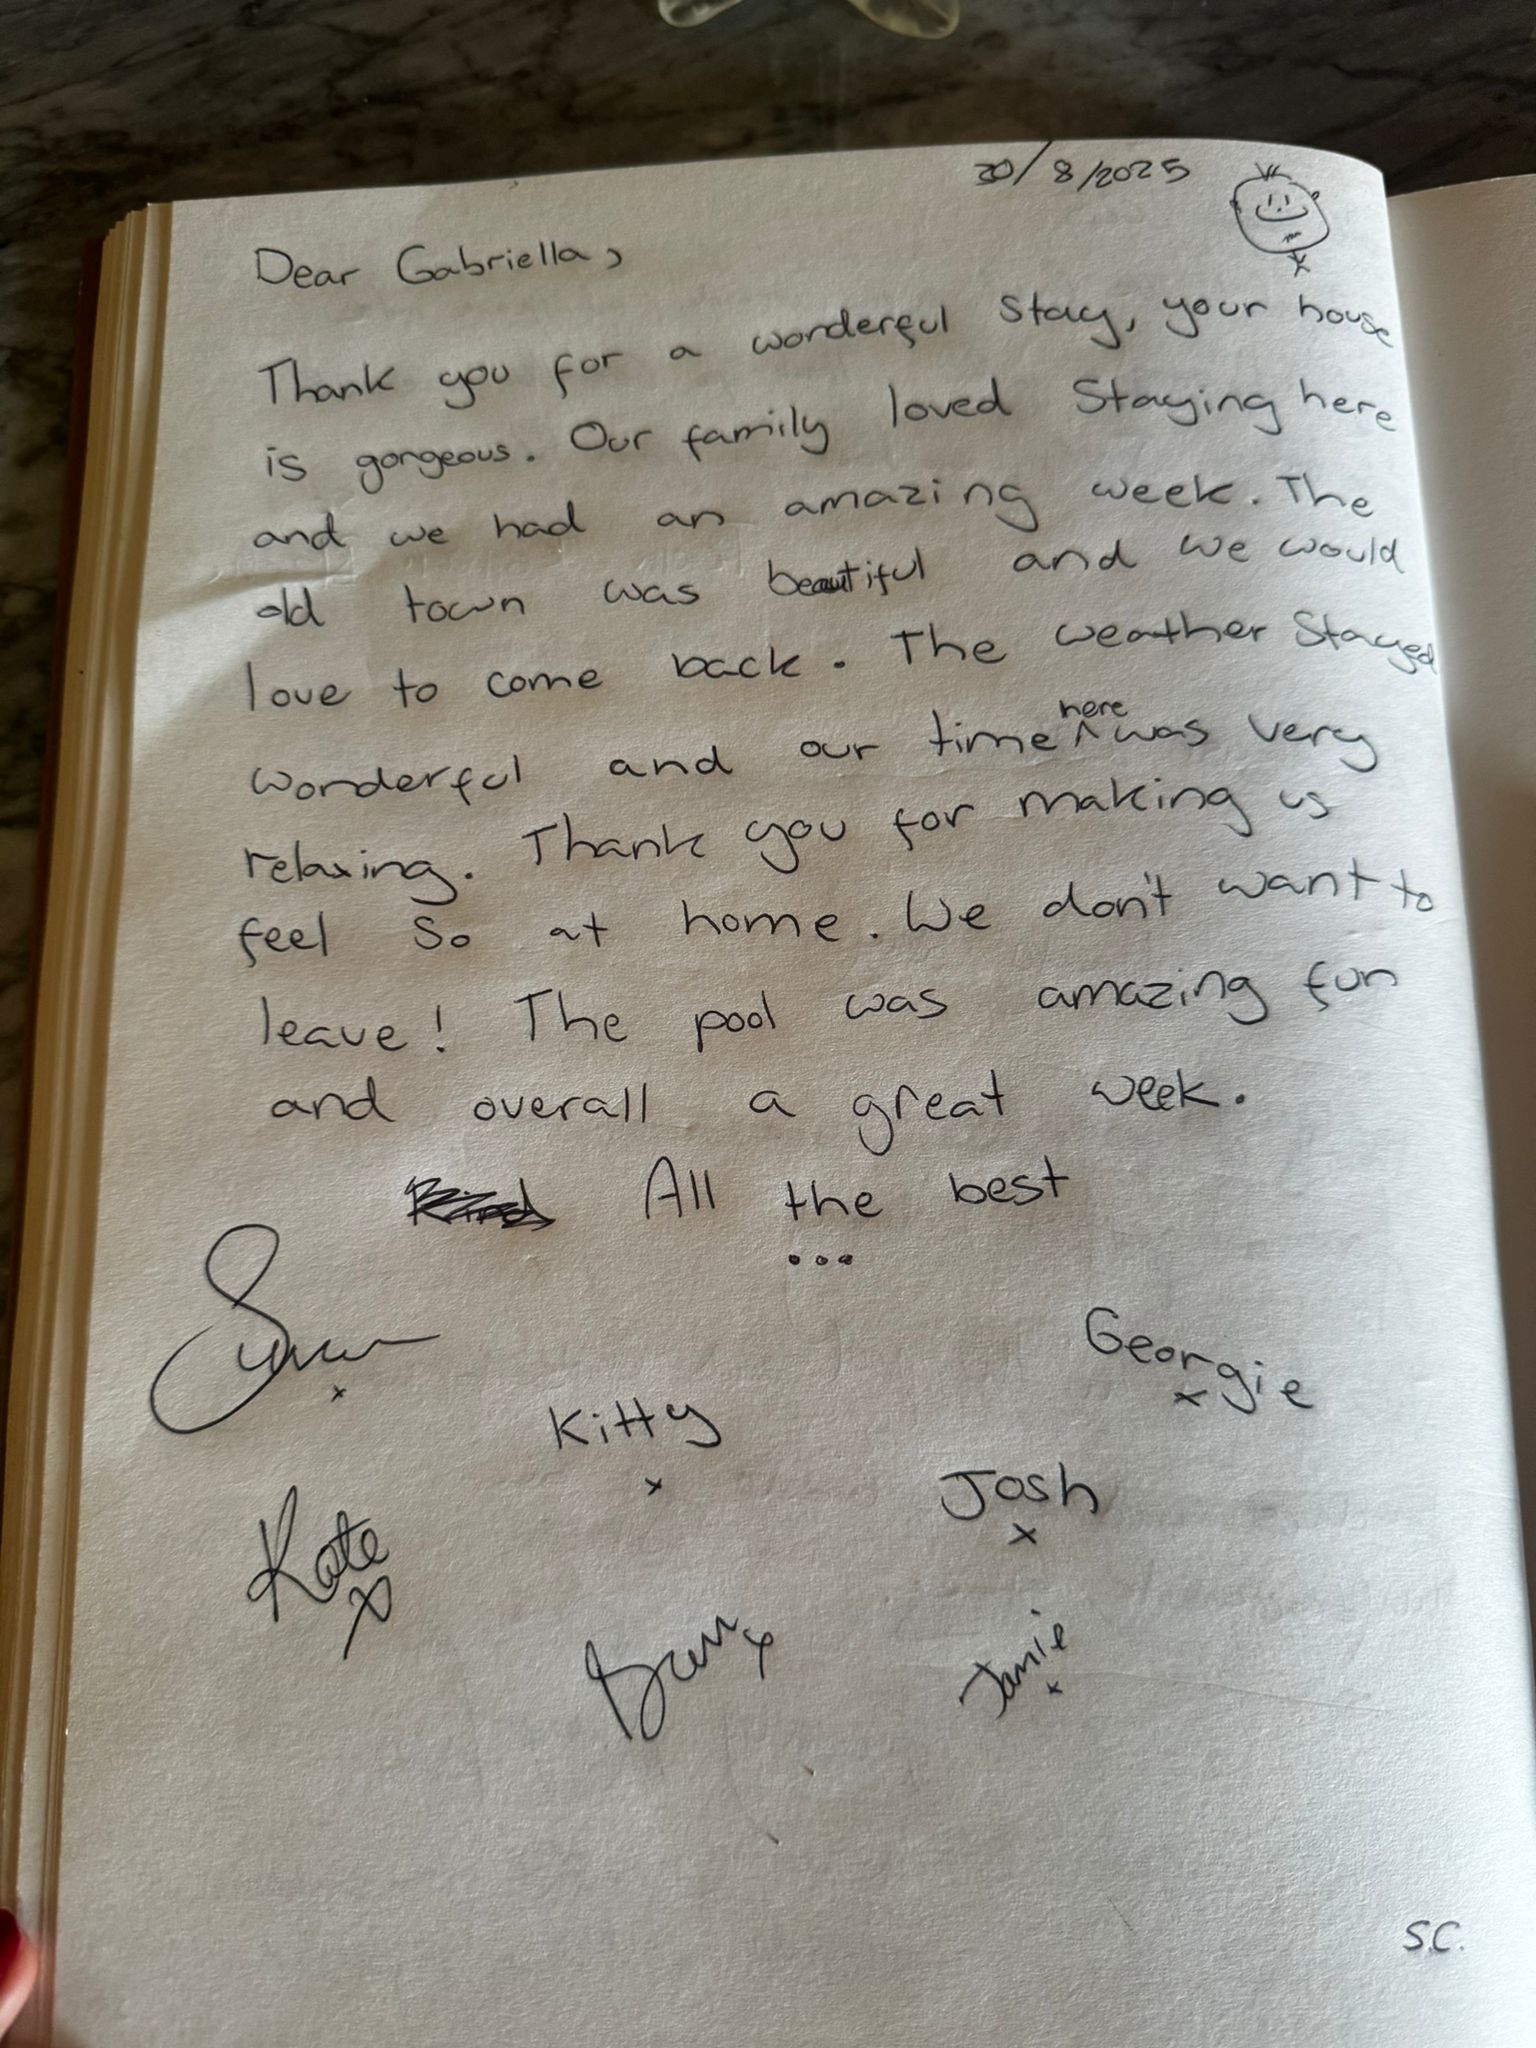 30/8/2025
Dear Gabriella,
Thank you for a wonderful stay, your house
is gorgeous. Our family loved staying here
and we had an amazing week. The
old town was beautiful and we would
love to come back. The weather stayed
wonderful and our time here was very
relaxing. Thank you for making us
feel so at home. We don't want to
leave! The pool was amazing fun
and overall a great week.
All the best
...
Georgie
x
x
Kitty
x
Josh
x
Kate
x
x
Jamie
x
S.C.